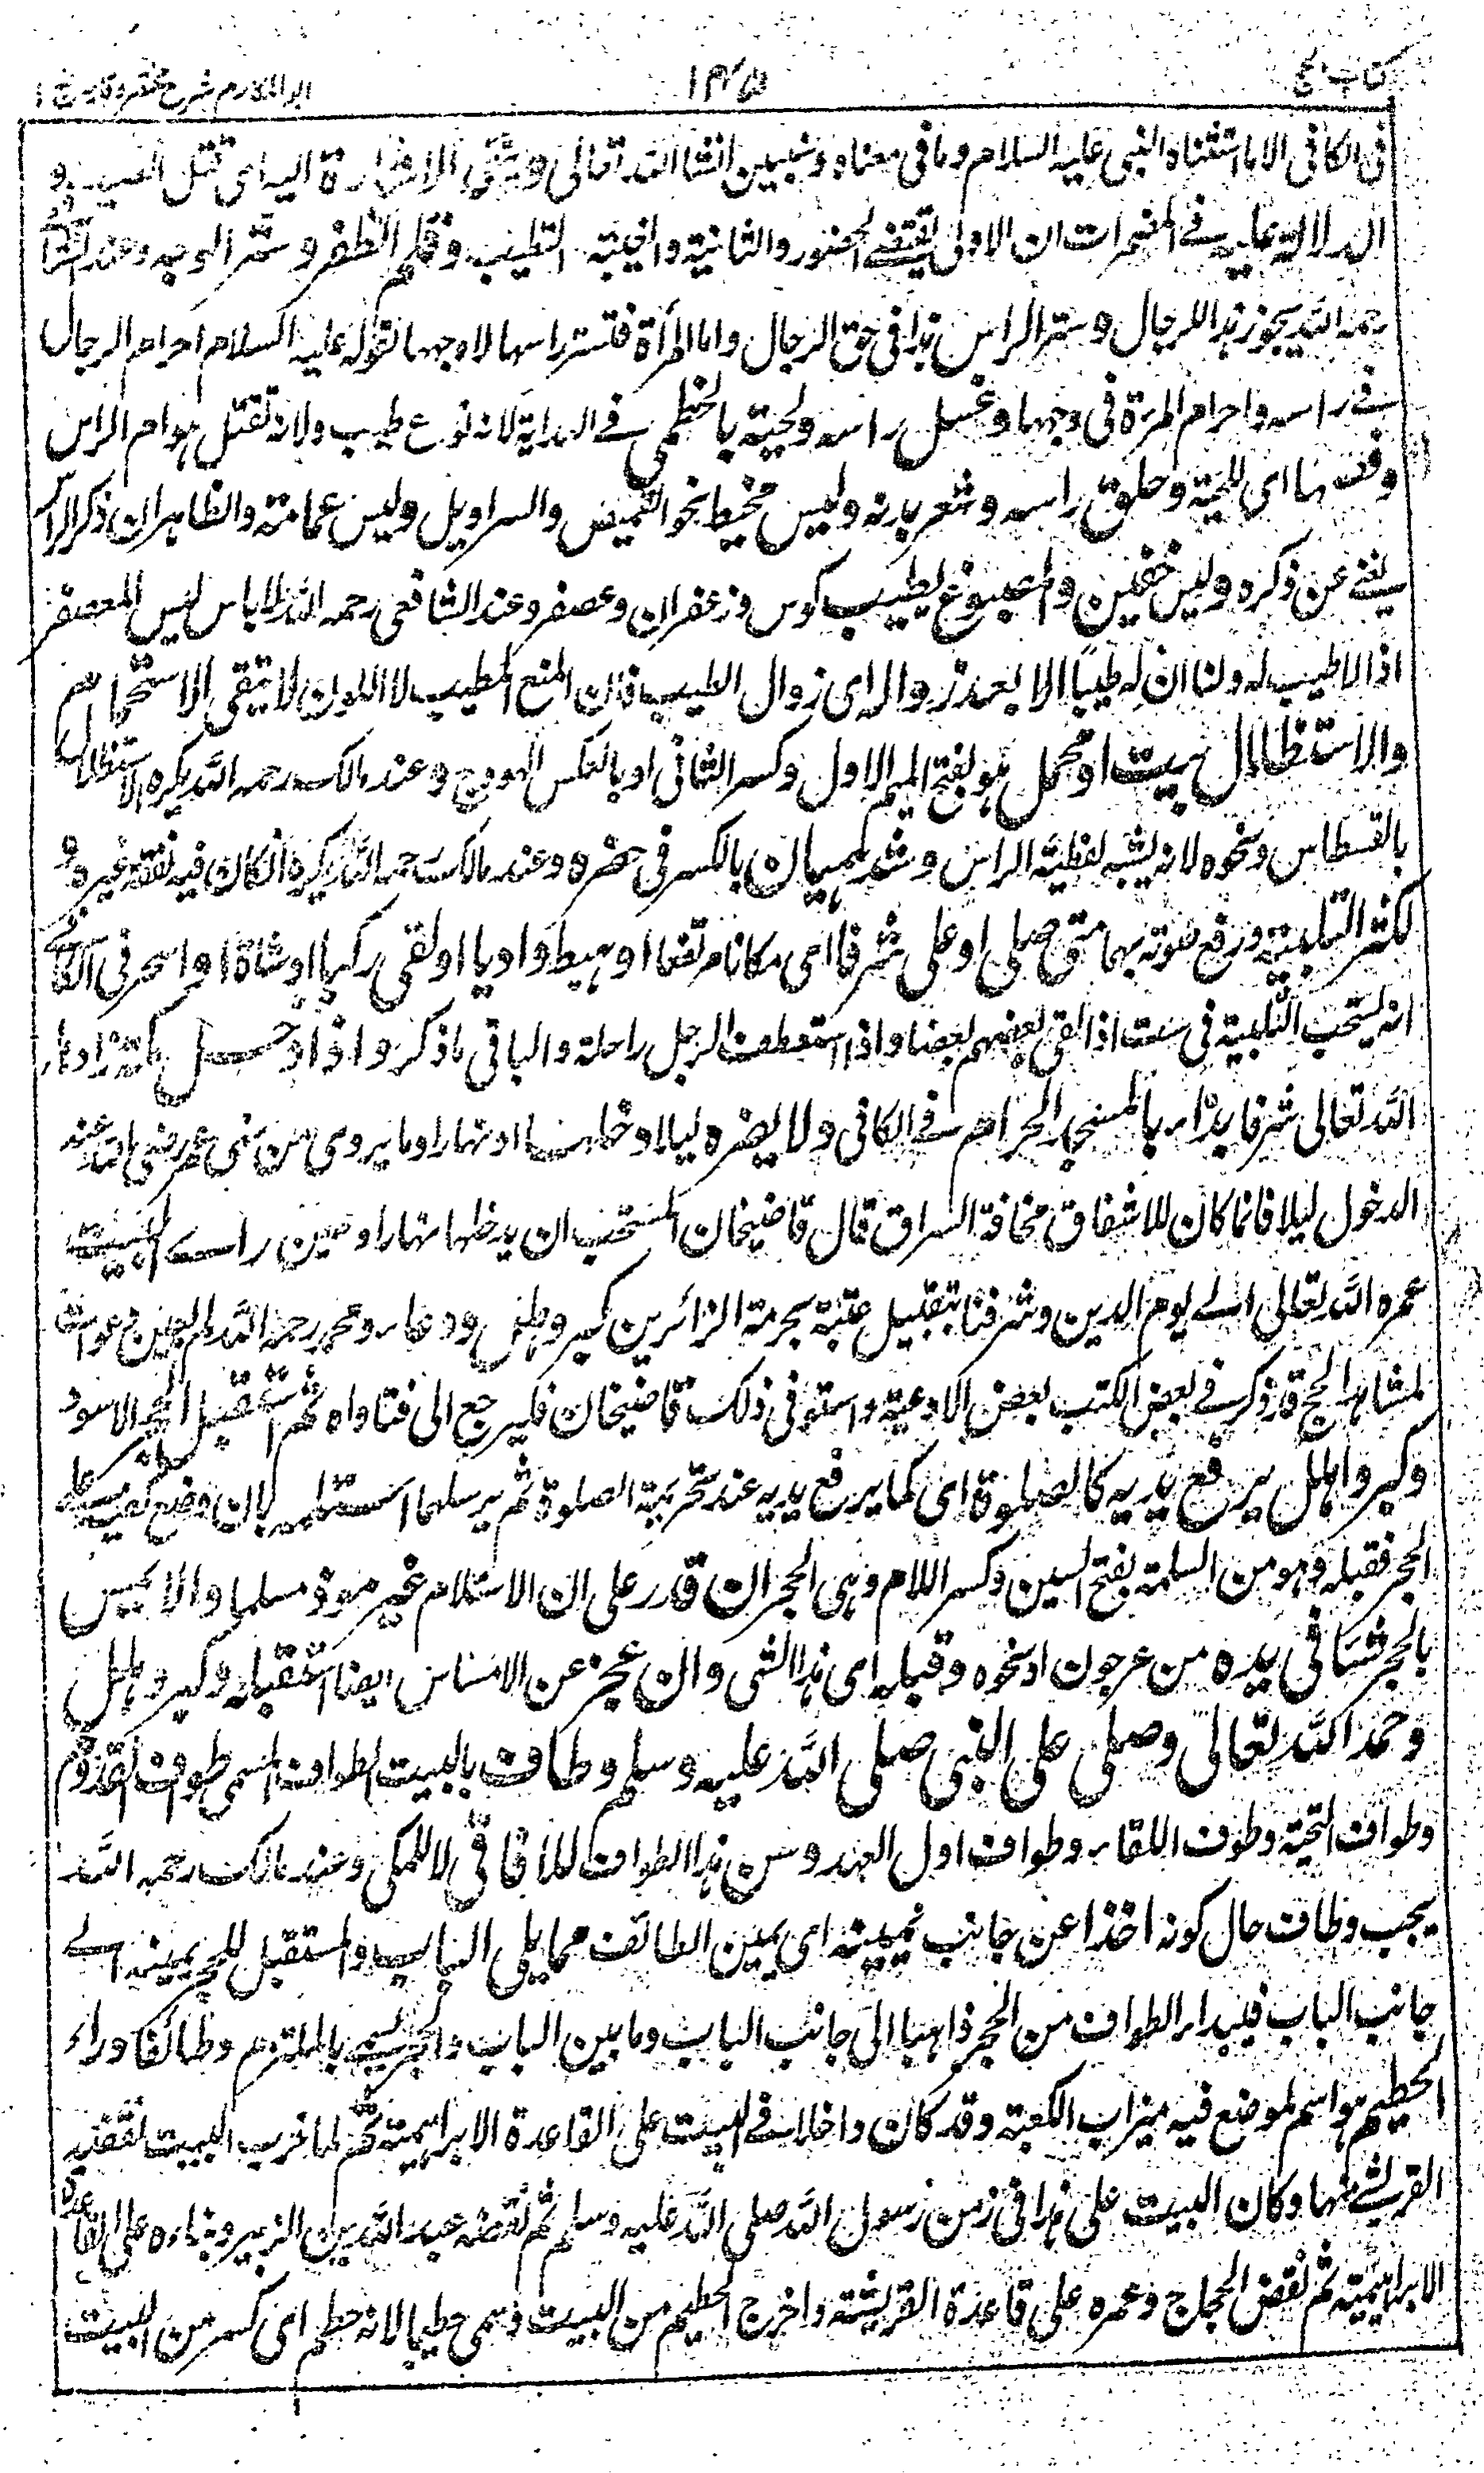 كتاب الحج
١٣٥
ابو المكارم شرح مختصر وقايه ج ١
فى الكافى الا ما استثناه النبى عليه السلام وما فى معناه وستبين انشا الله تعالى ويتقى الاشارة اليه اى قتل الصيد و
الدلالة عليه فے المضمرات ان الاولى يقتضے الحضور والثانية والغيبة التطيب وقلم الظفر وستر الوجه وعند الشا
رحمه الله يجوز هذا للرجال وستر الراس هذا فى حق الرجال واما المرأة فتستر راسها لا وجهها لقوله عليه السلام احرام الرجال
فے راسه واحرام المرءة فى وجهها وغسل راسه ولحيته بالخطمى فے الهداية لانه نوع طيب ولانه تقتل هوام الراس
وقصها اى اللحية وحلق راسه وشعر بدنه ولبس مخيط نحو القميص والسراويل ولبس عمامته والظاهر ان ذكر الراس
يغنے عن ذكره ولبس خفين والمصبوغ بطيب كورس وزعفران وعصفر وعند الشافعى رحمه الله لا باس لبس المعصفر
اذ لا طيب له ولنا ان له طيبا الا بعد زواله اى زوال الطيب فان المنع للطيب لا اللون لا يتقى الاستحمام
والاستظلال ببيت او محمل هو بفتح الميم الاول وكسر الثانى او بالعكس الهودج وعند مالك رحمه الله يكره الاستظلال
بالفسطاس ونحوه لانه يشبه تغطية الراس وشد هميان بالكسر فى خصره وعند مالك رحمه الله يكره ان كان فيه نفقة غيره و
اكثر التلبية ورفع صوته بها متى صلى او على شرفا اى مكانا مرتفعا او هبط واديا او لقى ركبا او شاة او اسحر فى الكافے
انه يستحب التلبية فى ست اذا لقى بعضهم بعضا واذا استعطف الرجل راحلته والباقى ما ذكر واذا دخل مكة زادها
الله تعالى شرفا بدا بالمسجد الحرام فے الكافى ولا يضره ليلا دخلها او نهارا وما يروى من نهى عمر رضى الله عنه
الدخول ليلا فانما كان للاشفاق مخافة السراق قال قاضيخان المستحب ان يدخلها نهارا وحين راے البيت
عمره الله تعالى الے يوم الدين وشرفنا بتقبيل عتبة بحرمة الزائرين كبر وهلل ودعا ومحمد رحمه الله لم يعين دعوات
لمشاهد الحج قد ذكر فے بعض الكتب بعض الادعية واستوفى ذلك قاضيخان فليرجع الى فتاواه ثم استقبل الحجر الاسود
وكبر وهلل يرفع يديه كالصلوة اى كما يرفع يديه عند تحريمة الصلوة ثم يرسلهما استلمه بان وضع كفيه على
الحجر فقبله وهو من السلمة بفتح السين وكسر اللام وهى الحجر ان قدر على ان الاستلام غير موذ مسلما والا يمس
بالحجر شيئا فى يده من عرجون او نحوه وقبله اى هذا الشى وان عجز عن الامساس ايضا استقبله وكبر وهلل
وحمد الله تعالى وصلى على النبى صلى الله عليه وسلم وطاف بالبيت الطواف المسمى طواف القدوم
وطواف التحية وطوف اللقاء وطواف اول العهد وسن هذا الطواف للآفاقى لا للمكى وعند مالك رحمه الله
يجب وطاف حال كونه اخذا عن جانب يمينه اى يمين الطائف مما يلى الباب والمستقبل للحجر يمينه الے
جانب الباب فيبدا الطواف من الحجر ذاهبا الى جانب الباب وما بين الباب والحجر يسمے بالملتزم وطائفا وراء
الحطيم هو اسم لموضع فيه ميزاب الكعبة وقد كان داخلا فے البيت على القاعدة الابراهيمية ثم لما خرب البيت نقضته
القريشے منها وكان البيت على هذا فى زمن رسول الله صلى الله عليه وسلم ثم نقضه عبد الله بن الزبير وبناءه على القاعدة
الابراهيمية ثم نقض الحجاج وعمره على قاعدة القريشية واخرج الحطيم من البيت وسمى حطيما لانه حطم اى كسر من البيت